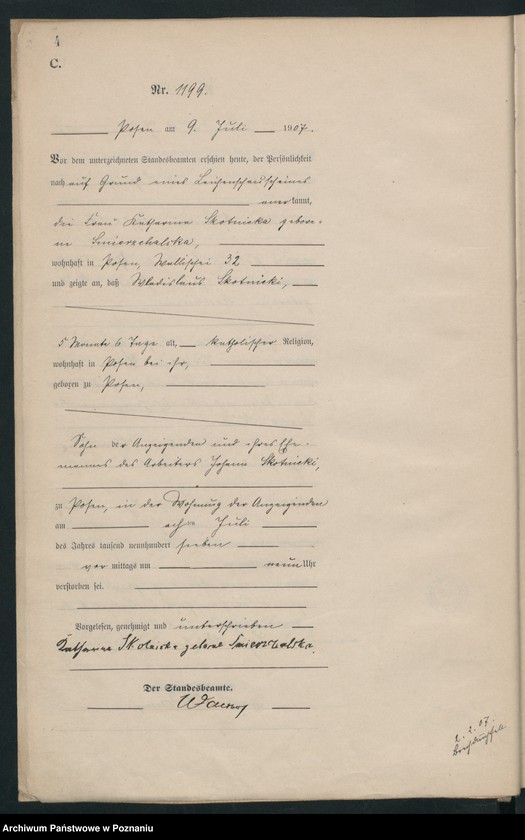 C.
Nr. 1199.
Posen am 9. Juli 1907.
Vor dem unterzeichneten Standesbeamten erschien heute, der Persönlichkeit
nach auf Grund eines Leichenschauscheines
anerkannt,
die Frau Katharina Skotnicka gebore-
ne Smierzchalska,
wohnhaft in Posen, Wallischei 32
und zeigte an, daß Wladislaus Skotnicki,
5 Monate 6 Tage alt, katholischer Religion,
wohnhaft in Posen bei ihr,
geboren zu Posen,
Sohn der Anzeigenden und ihres Ehe-
mannes des Arbeiters Johann Skotnicki,
zu Posen, in der Wohnung der Anzeigenden
am achten Juli
des Jahres tausend neunhundert sieben
vormittags um neun Uhr
verstorben sei.
Vorgelesen, genehmigt und unterschrieben
Katharina Skotnicka geborene
Der Standesbeamte.
2. 07.
Archiwum Państwowe w Poznaniu